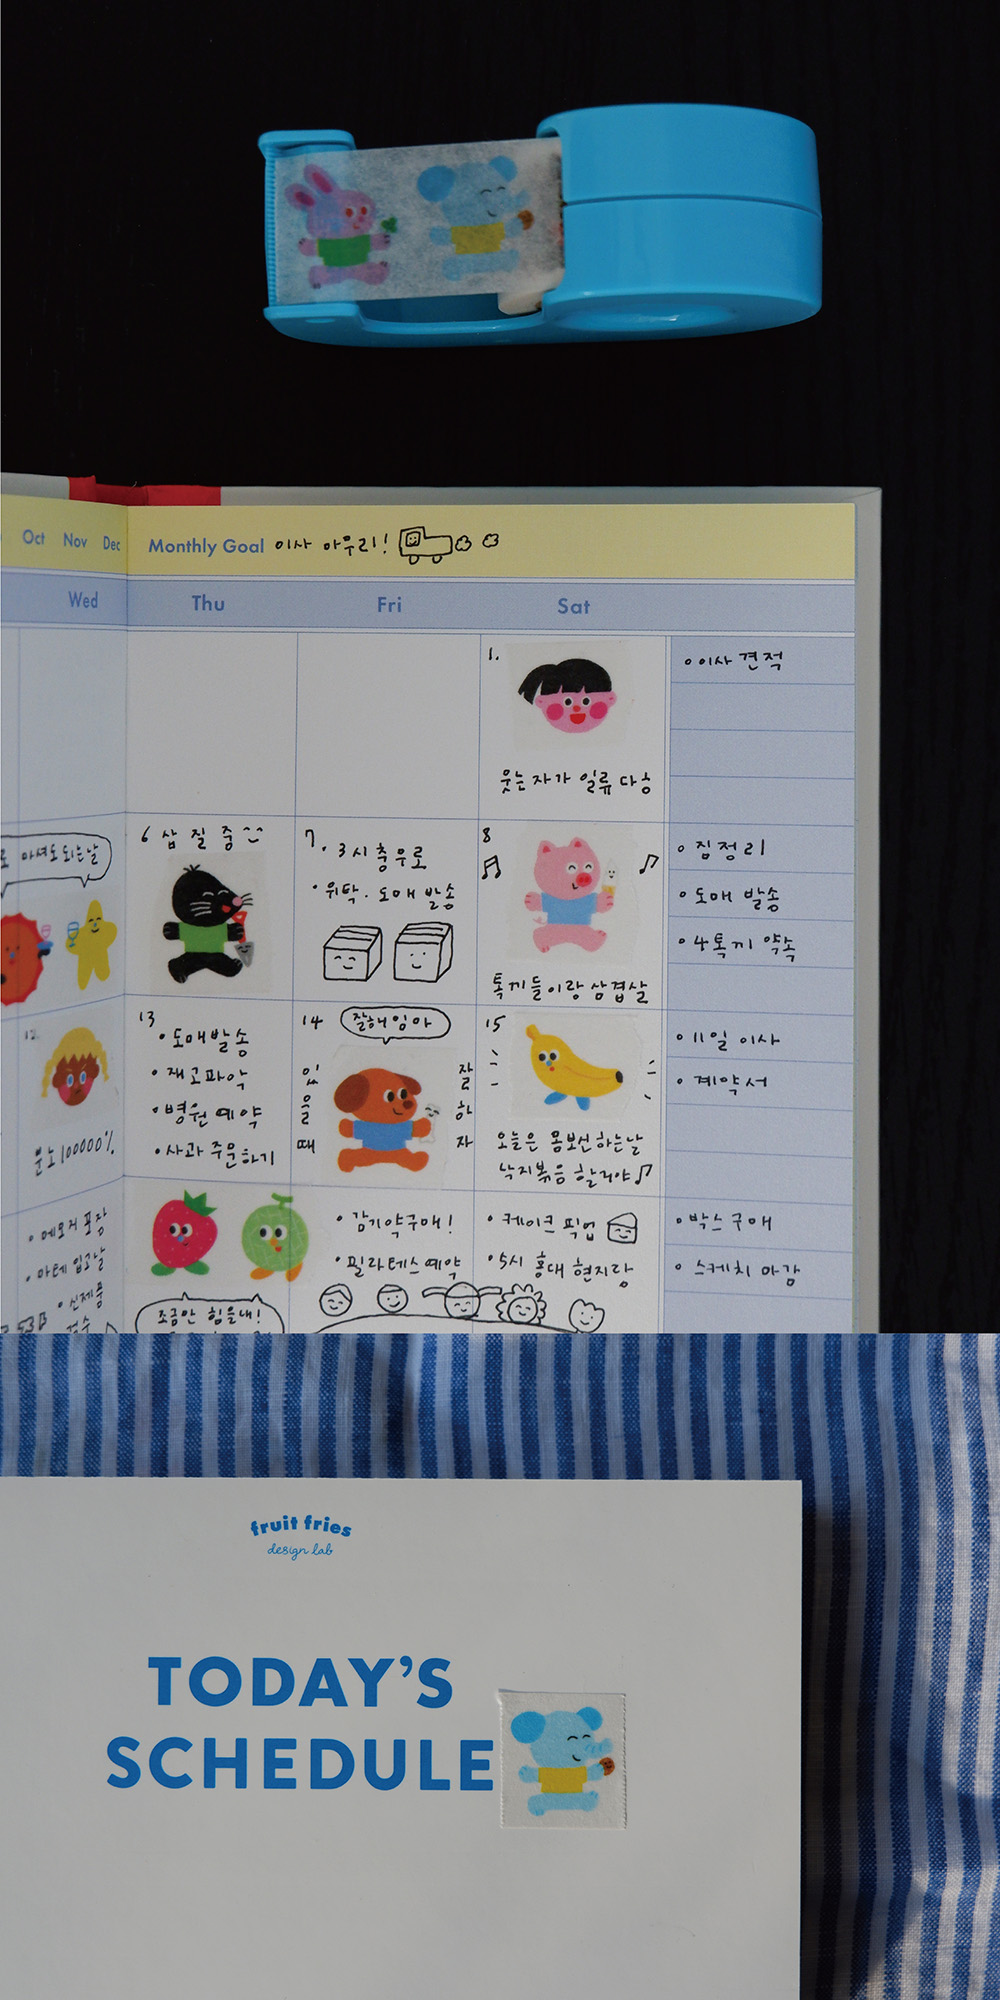 Oct Nov Dec
Monthly Goal 이사 마무리!
Wed Thu Fri Sat
1.
웃는 자가 일류다흥
이사 견적
마셔도 되는 날
6 삽질중
7. 3시 충무로
위탁·도매 발송
8
톡끼들이랑 삼겹살
짐정리
도매 발송
4톡끼 약속
12.
분노 100000%
13
도매 발송
재고파악
병원 예약
사과 주문하기
14 잘해임마
있을때
잘하자
15
오늘은 몸보신 하는 날
낙지볶음 할거야
11일 이사
계약서
포장
마테 입고날
신제품
검수
조금만 힘을 내!
감기약 구매!
필라테스 예약
케이크 픽업
5시 홍대 현지랑
박스 구매
스케치 마감
fruit fries
design lab
TODAY'S
SCHEDULE